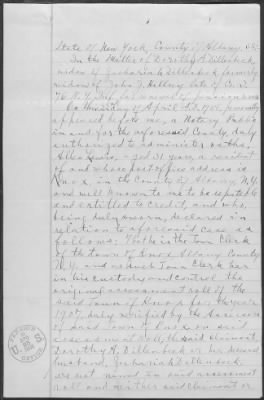 State of New York, County of Albany, ss:
In the Matter of Dorothy A. Dillenbeck,
widow of Zachariah Dillenbeck & formerly
widow of John J. Hellery late of Co.
76 N.Y. Inf. for pension
On this day of April A.D. 1908, personally
appeared before me, a Notary Public
in and for the aforesaid County, duly
authorized to administer oaths,
Allen Lewis, aged 31 years, a resident
of and whose post office address is
Knox, in the County of Albany N.Y.
and well known to me to be reputable
and entitled to credit, and who,
being duly sworn, declared in
relation to aforesaid case as
follows: That he is the Town Clerk
of the town of Knox Albany County
N.Y. and as such Town Clerk has
in his custody and control the
original assessment roll of the
said Town of Knox for the year
1907 duly verified by the Assessors
of said Town of Knox on said
assessment roll, the said claimant
Dorothy A. Dillenbeck or her deceased
husband, Zachariah Dillenbeck,
are not named in said assessment
roll and neither said claimant or